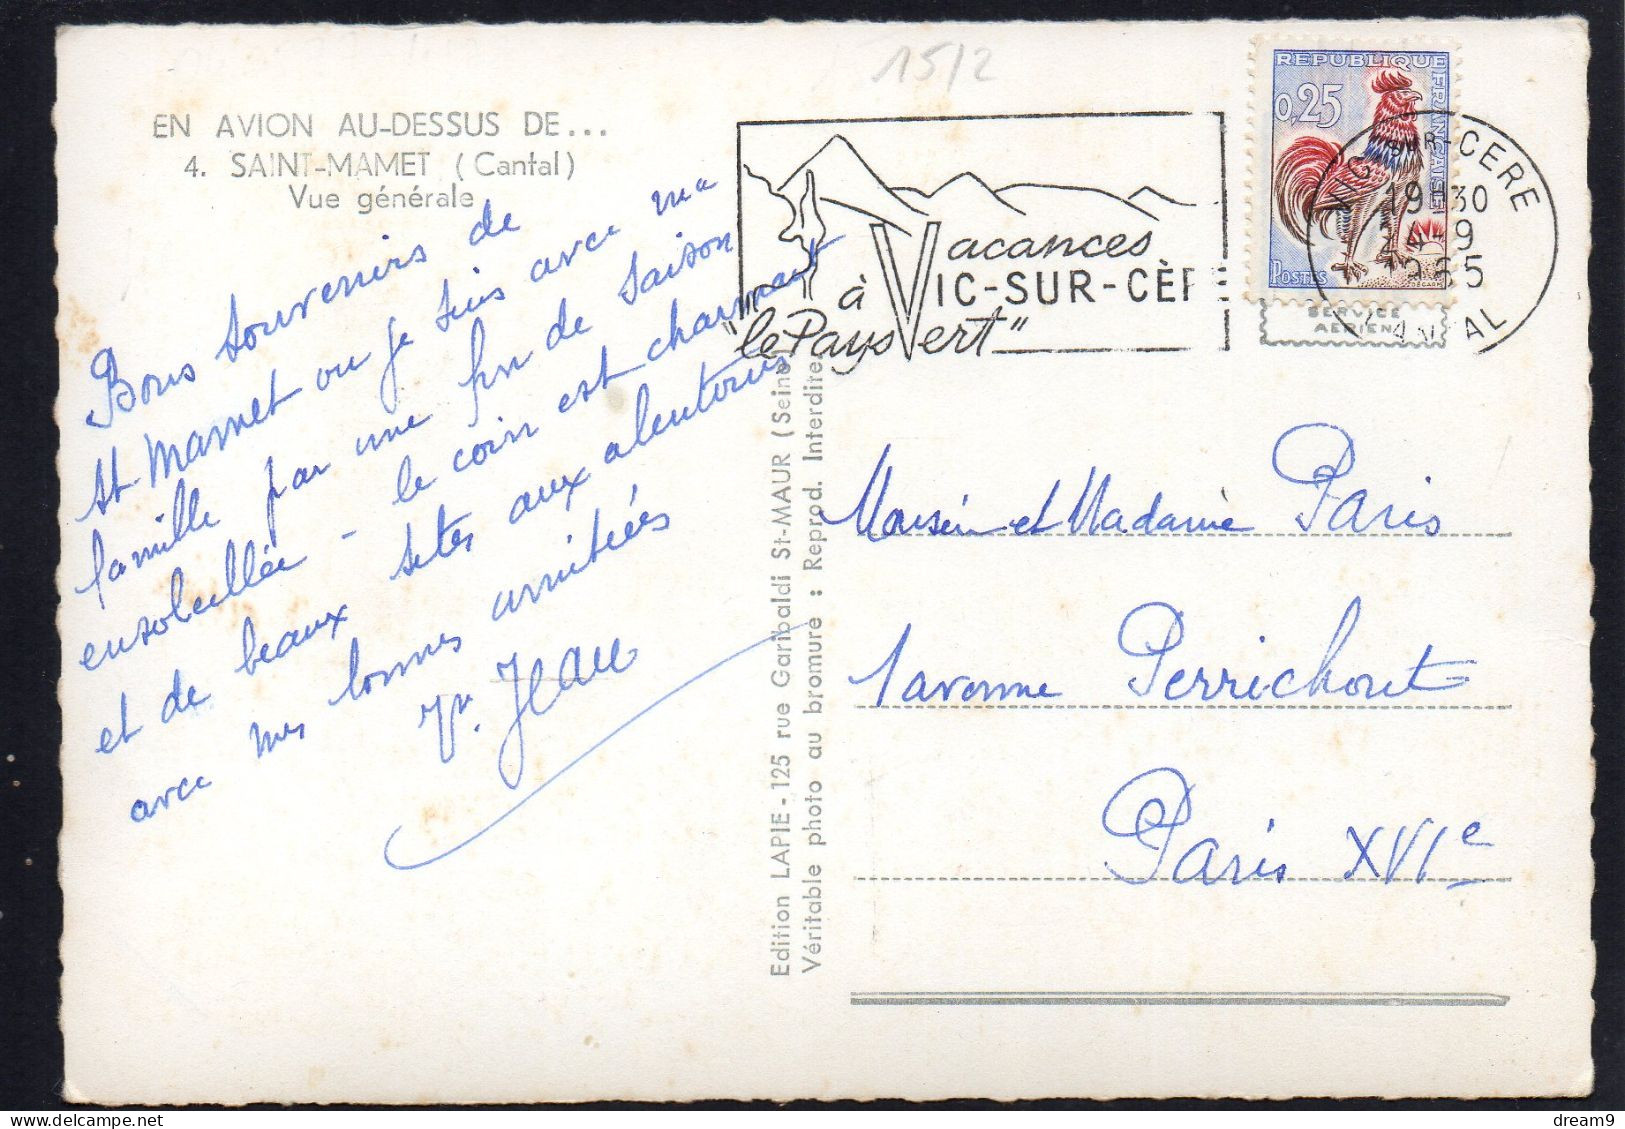 15/2
EN AVION AU-DESSUS DE...
4. SAINT-MAMET (Cantal)
Vue générale
Bons souvenirs de
St Mamet ou je suis avec ma
famille par une fin de saison
ensoleillée - le coin est charmant
et de beaux sites aux alentours
avec mes bonnes amitiées
Jean
Vacances
à VIC-SUR-CÈRE
"le Pays Vert"
REPUBLIQUE FRANÇAISE
0,25
POSTES
VIC-SUR-CERE
19H30
24-9
1965
CANTAL
SERVICE
AERIEN
Edition LAPIE - 125 rue Garibaldi St-MAUR (Seine)
Véritable photo au bromure : Reprod. Interdite
et Madame Paris
1 avenue Perrichont
Paris XVIe
© delcampe.net
dream9